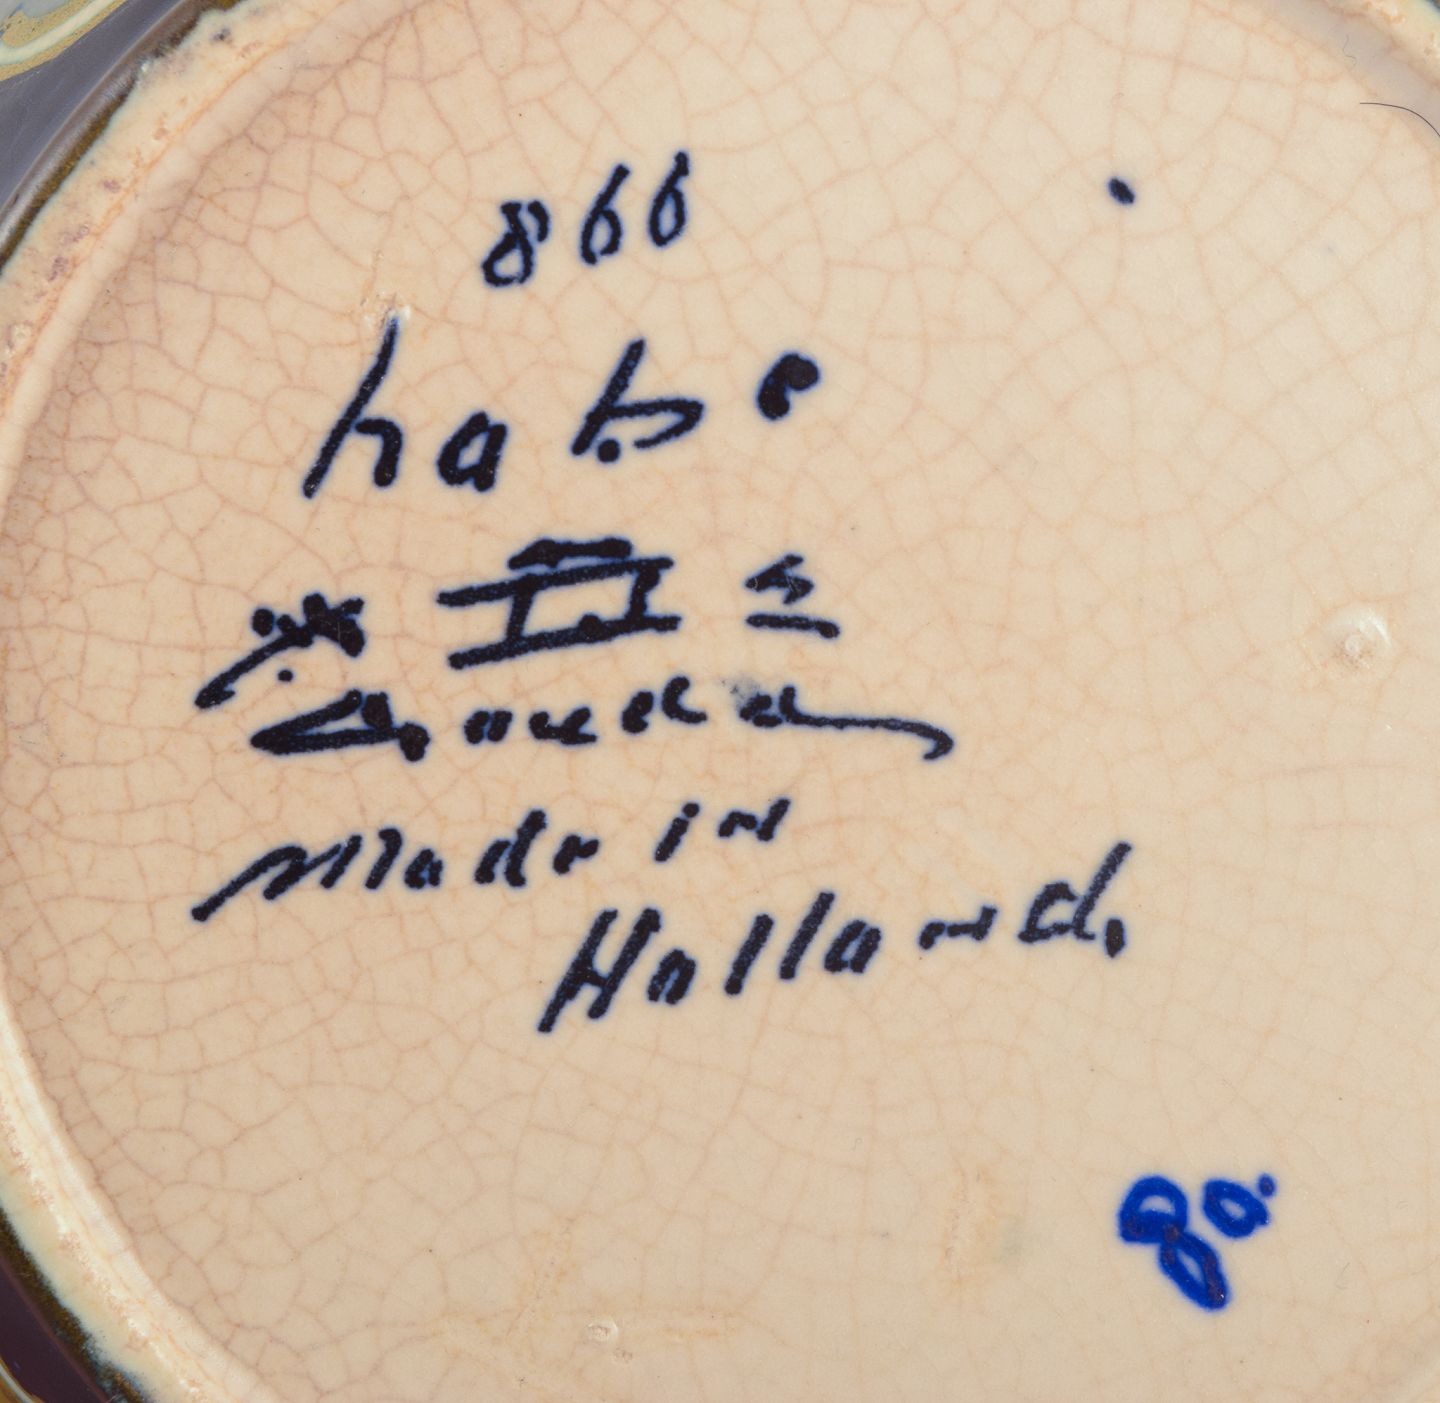 866
habe
Gouda
Made in
Holland.